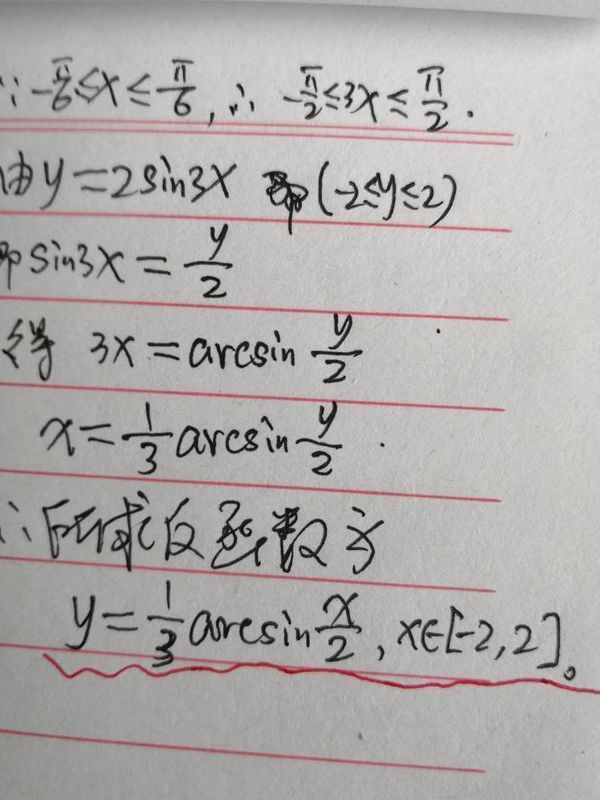 ∵ -π/6≤x≤π/6, ∴ -π/2≤3x≤π/2.
由y=2sin3x (-2≤y≤2)
即sin3x=y/2
得 3x=arcsin y/2
x=1/3 arcsin y/2.
∴所求反函数为
y=1/3 arcsin x/2, x∈[-2,2]。